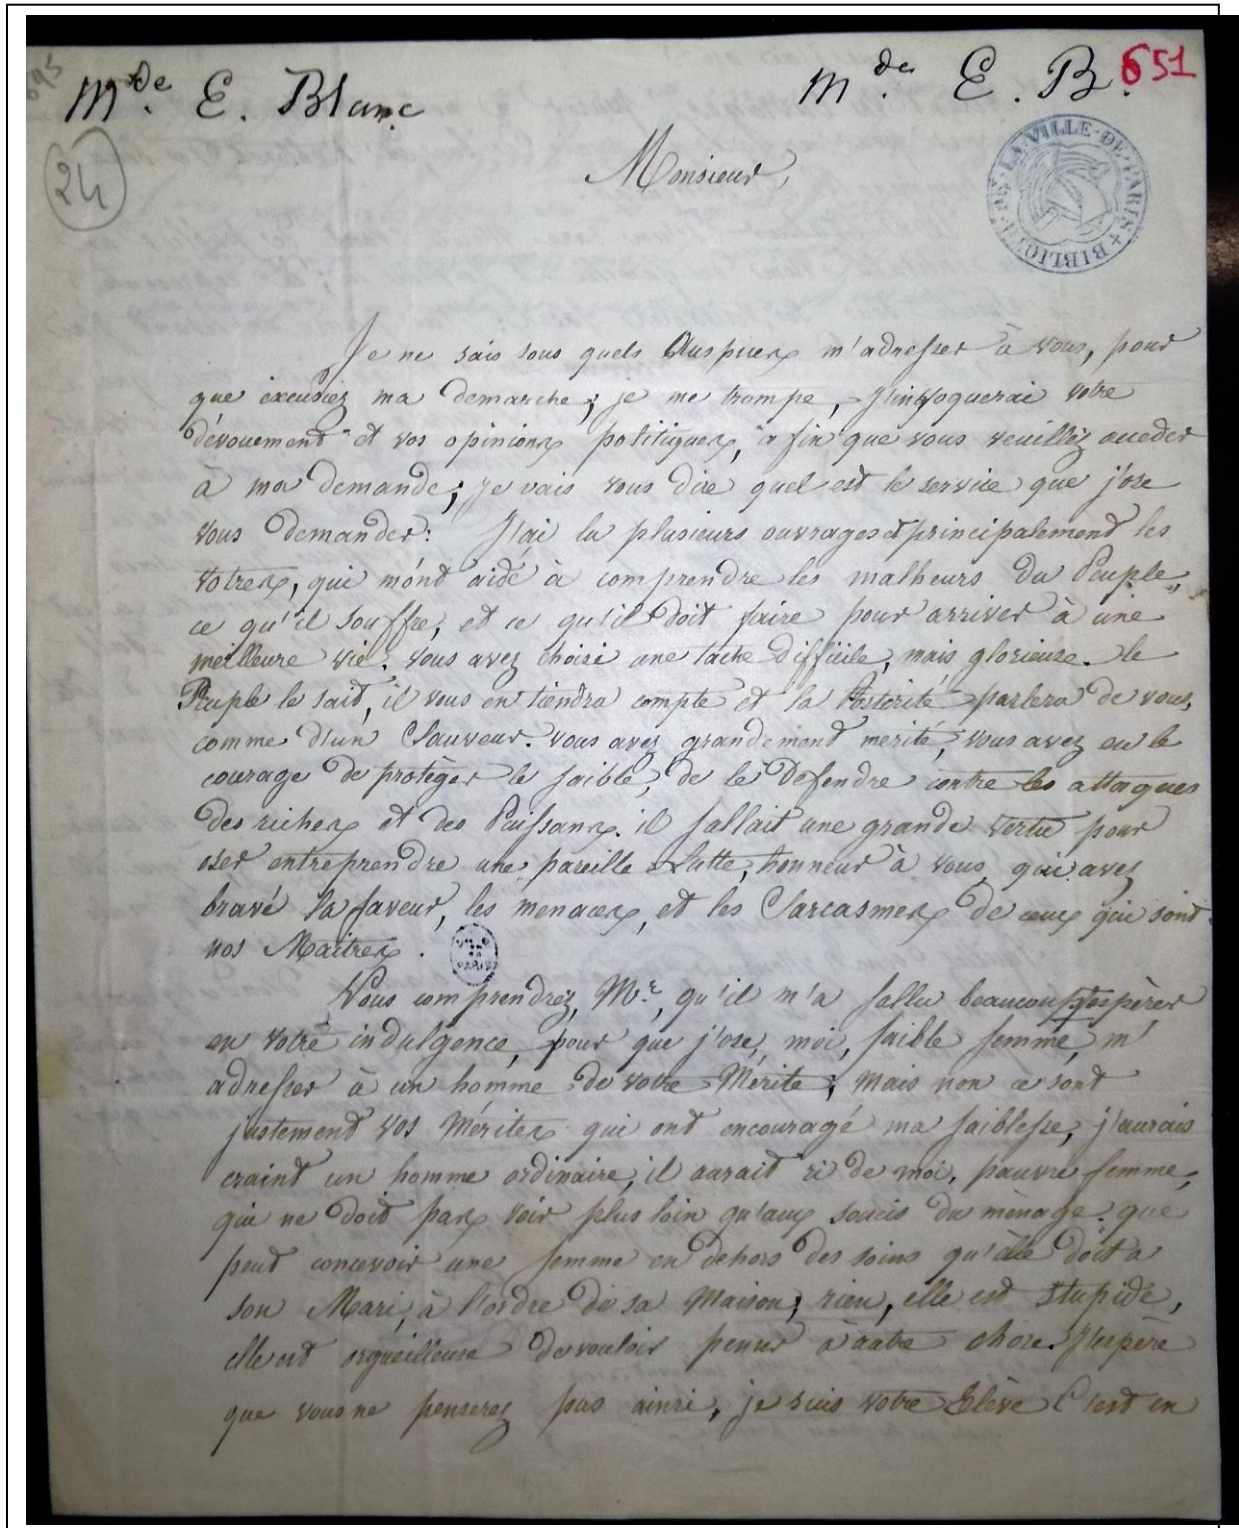 Mde. E. Blanc
Mde. E. B.
651
24
BIBLIOTH. DE LA VILLE DE PARIS
Monsieur,
Je ne sais sous quels Auspices m'adresser à vous, pour
que excusiez ma demarche; je me trompe, J'invoquerai votre
dévouement et vos opinions politiques, afin que vous veuillèz acceder
à ma demande; Je vais vous dire quel est le service que j'ose
vous demander: J'ai lu plusieurs ouvrages et principalement les
votres, qui m'ont aidé à comprendre les malheurs du Peuple,
ce qu'il souffre, et ce qu'il doit faire pour arriver à une
meilleure vie. vous avez choisi une tache difficile, mais glorieuse. le
Peuple le sait, il vous en tiendra compte et la Postérité parlera de vous,
comme d'un Sauveur. vous avez grandement merité, vous avez eu le
courage de protèger le faible, de le Defendre contre les attaques
des riches et des Puissans. il fallait une grande vertu pour
oser entreprendre une pareille Lutte, honneur à vous qui avez
bravé la faveur, les menaces, et les Sarcasmes de ceux qui sont
nos Maitres.
VILLE DE PARIS
Vous comprendrez, Mr., qu'il m'a fallu beaucoup espèrer
en votre indulgence, pour que j'ose, moi, faible femme, m'
adresser à un homme de votre Mérite; Mais non ce sont
justement vos Mérites qui ont encouragé ma faiblesse, j'aurais
craint un homme ordinaire, il aurait ri de moi, pauvre femme,
qui ne doit pas voir plus loin qu'aux soucis du mènage. que
peut concevoir une femme en dehors des soins qu'elle doit a
son Mari, à l'ordre de sa Maison; rien, elle est stupide,
elle est orgueilleuse de vouloir penser à autre chose. J'espère
que vous ne penserez pas ainsi, je suis votre Elève C'est en